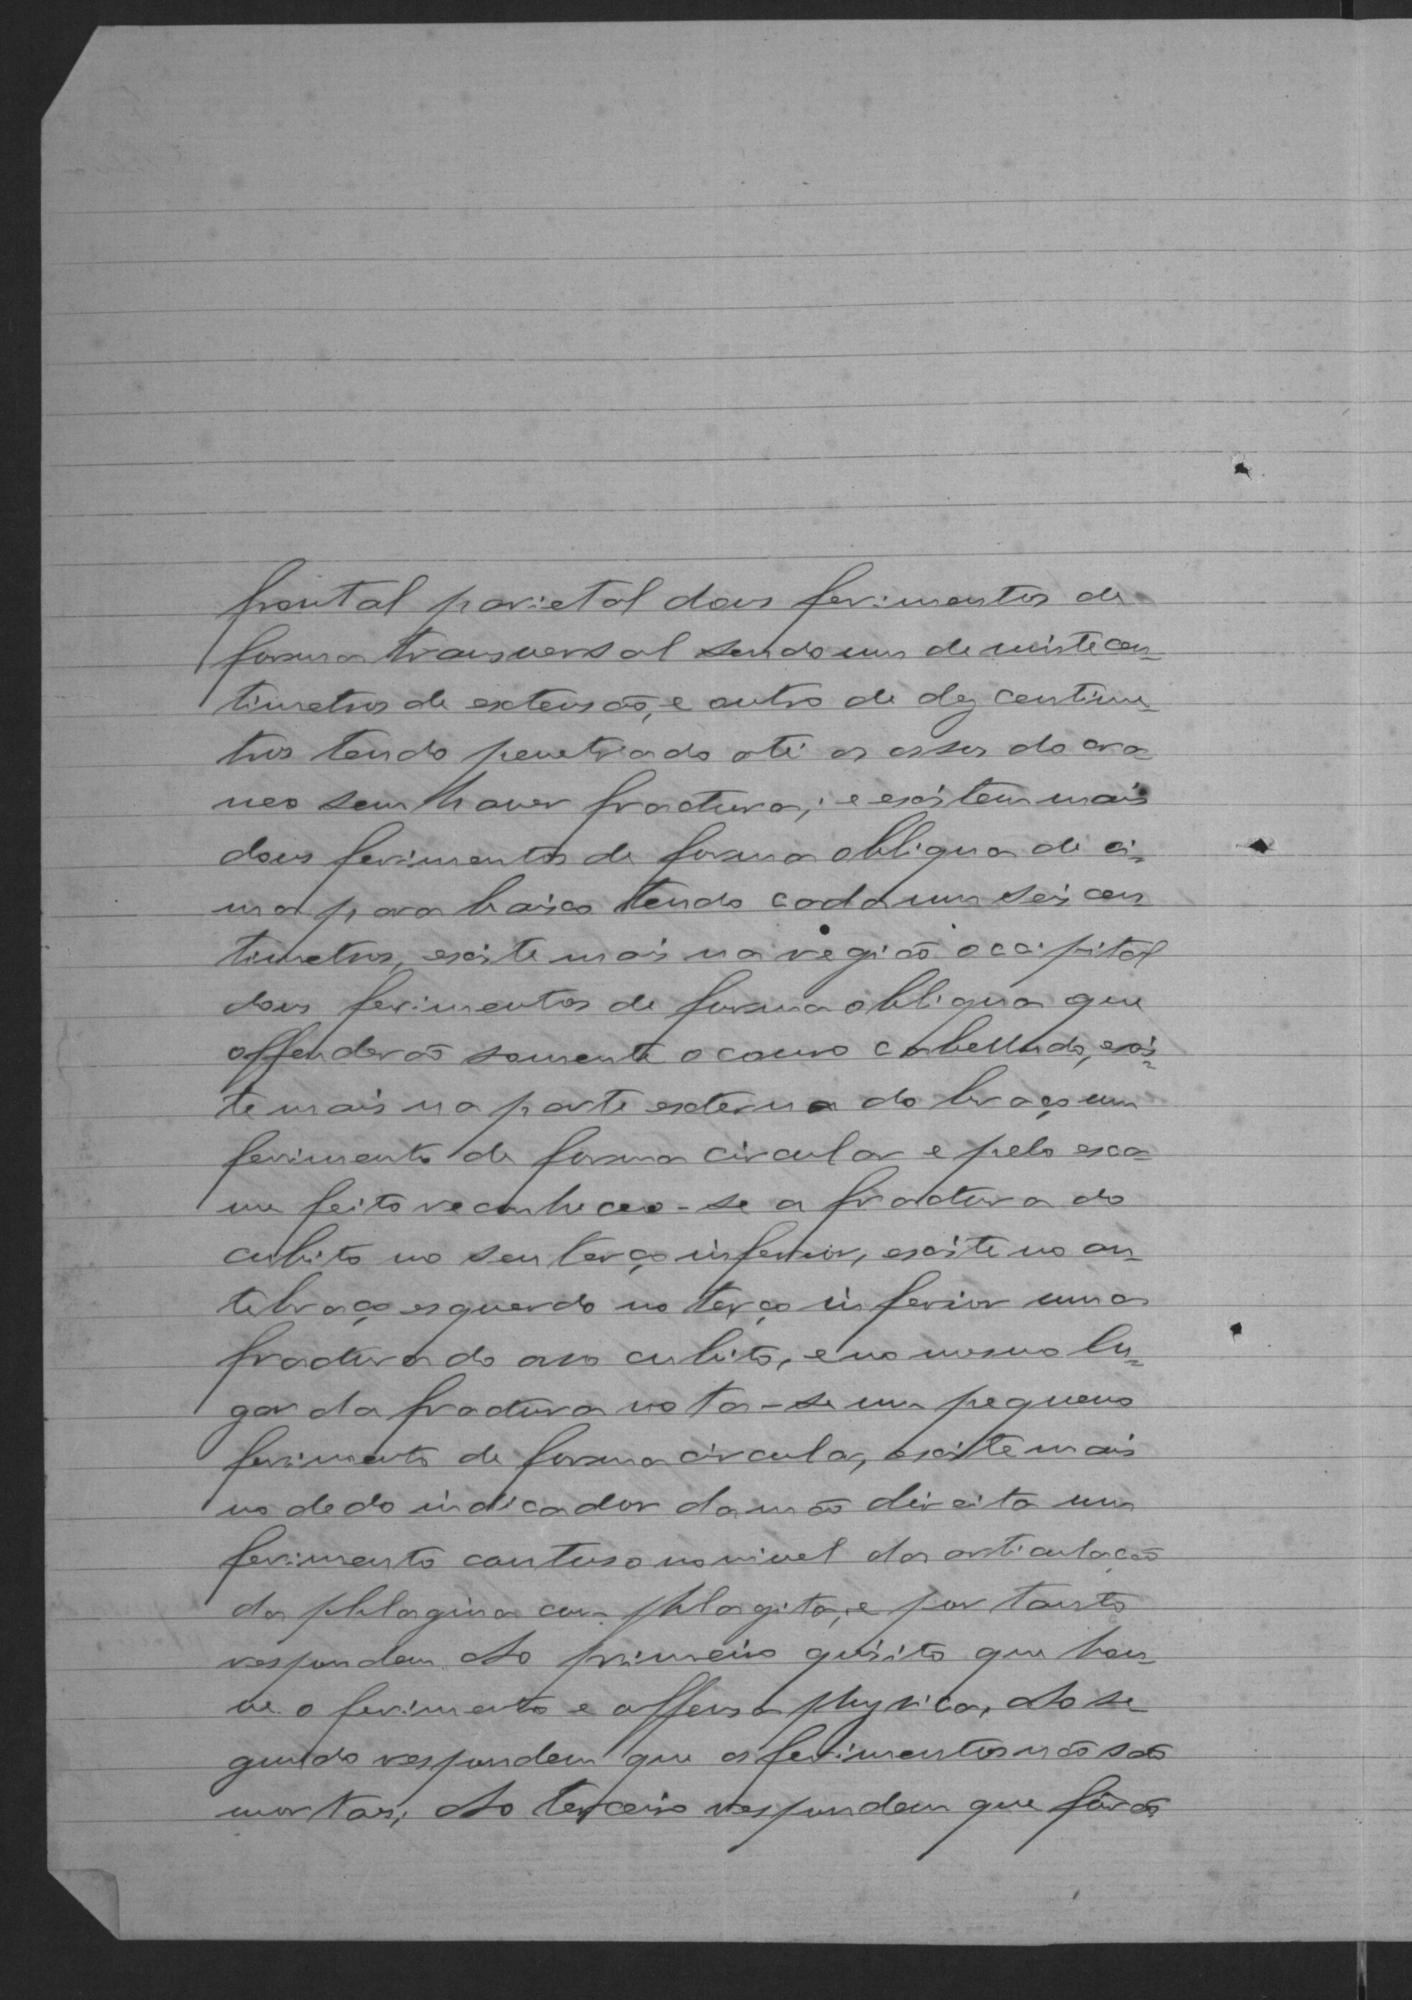 frontal parietal dous ferimentos de
forma transversal sendo um de vinte cen-
timetros de extensão, e outro de dez centime-
tros tendo penetrado até os ossos do cra-
neo sem haver fractura; e existem mais
dous ferimentos de forma obliqua de ci-
ma para baixo tendo cada um seis cen
timetros, existe mais na região occipital
dous ferimentos de forma obliqua que
offenderão somente o couro cabelludo, exis-
te mais na parte externa do braço um
ferimento de forma circular e pelo exa-
me feito reconheceo-se a fractura do
cubito no seu terço inferior, existe no an-
tebraço esquerdo no terço inferior uma
fractura do oso cubito, e no mesmo lu-
gar da fractura nota-se um pequeno
ferimento de forma circular, existe mais
no dedo indicador da mão direita um
ferimento contuso no nivel da articulação
da phlagina com phlagita, e por tanto
respondem Ao primeiro quisito que hou-
ve o ferimento e offensa physica, Ao se
gundo respondem que os ferimentos não são
mortaes, Ao terceiro respondem que fôrão